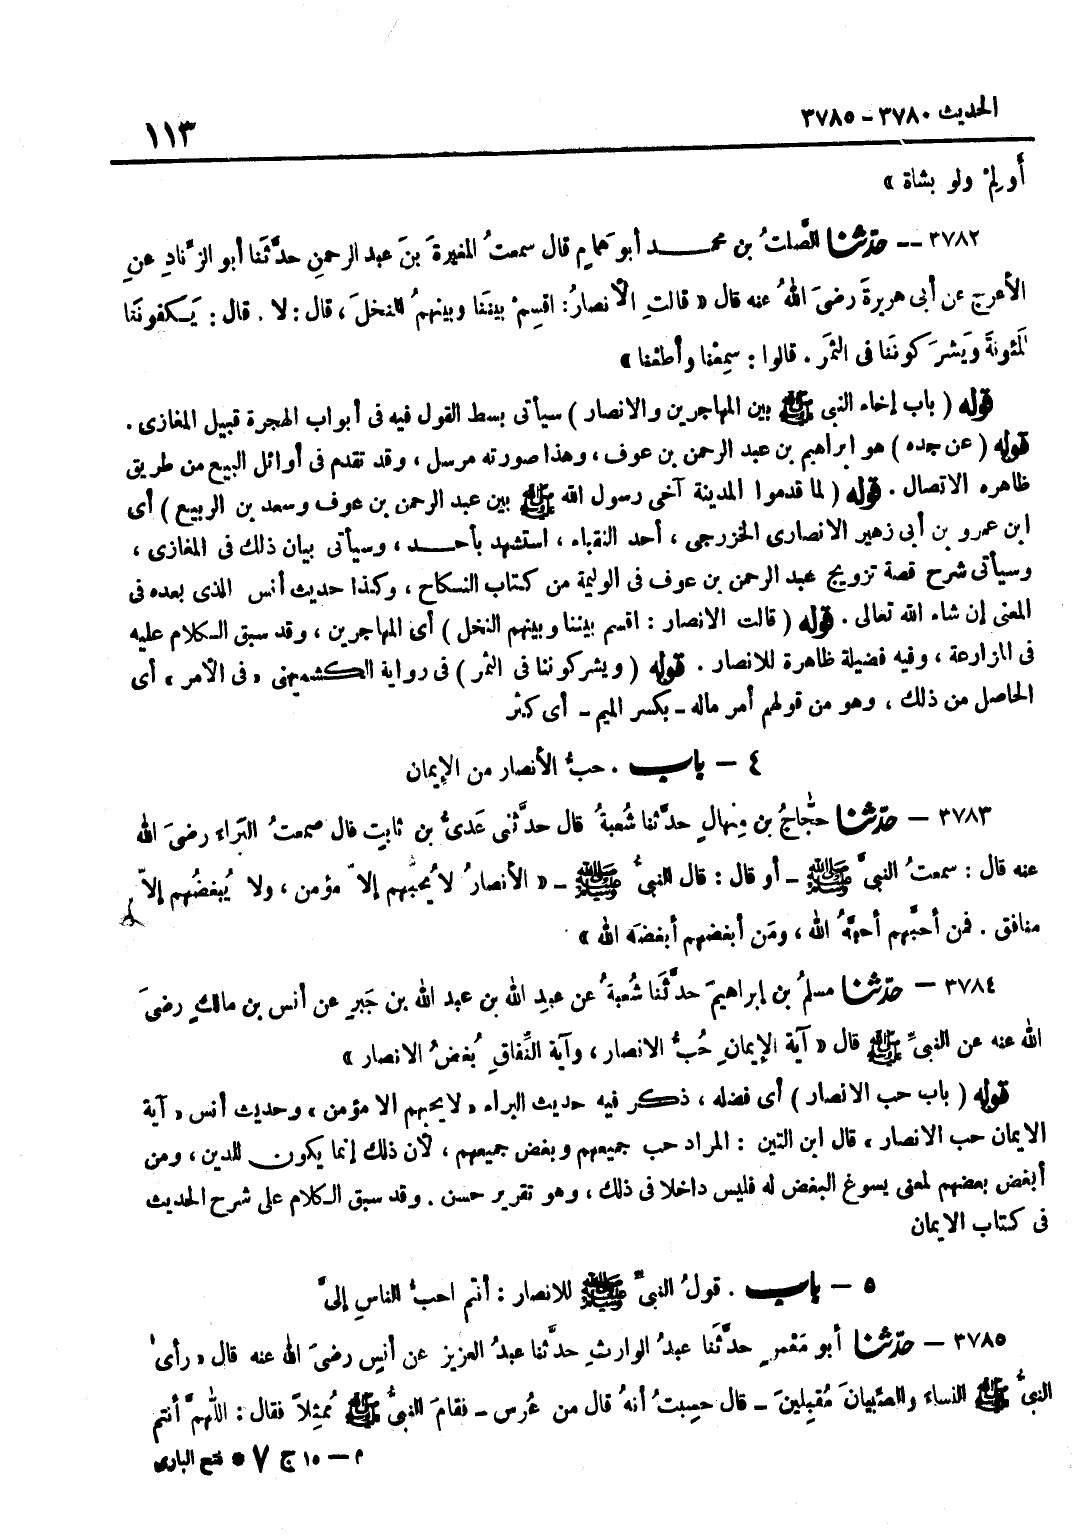 الحديث ٣٧٨٠ - ٣٧٨٥
١١٣
أَولِمْ ولو بشاة »
٣٧٨٢ -- حدّثنا الصَّلتُ بن محمد أبو همامٍ قال سمعتُ المغيرةَ بنَ عبد الرحمنِ حدَّثَنا أبو الزِّنادِ عنِ
الأعرج عن أبى هريرةَ رضىَ اللهُ عنه قال « قالتِ الأنصارُ: اقسِمْ بينَنا وبينهمُ النخلَ ، قال : لا . قال : يَكفونَنا
المئونةَ ويَشرَكونَنا فى الثمَر . قالوا : سمِعْنا وأطعْنا »
قوله ( باب إخاء النبى ﷺ بين المهاجرين والانصار ) سيأتى بسط القول فيه فى أبواب الهجرة قبيل المغازى .
قوله ( عن جده ) هو ابراهيم بن عبد الرحمن بن عوف ، وهذا صورته مرسل ، وقد تقدم فى أوائل البيع من طريق
ظاهره الاتصال . قوله ( لما قدموا المدينة آخى رسول الله ﷺ بين عبد الرحمن بن عوف وسعد بن الربيع ) أى
ابن عمرو بن أبى زهير الانصارى الخزرجى ، أحد النقباء ، استشهد بأحد ، وسيأتى بيان ذلك فى المغازى ،
وسيأتى شرح قصة تزويج عبد الرحمن بن عوف فى الوليمة من كتاب النكاح ، وكذا حديث أنس الذى بعده فى
المعنى إن شاء الله تعالى . قوله ( قالت الانصار : اقسم بيننا وبينهم النخل ) أى المهاجرين ، وقد سبق الكلام عليه
فى المزارعة ، وفيه فضيلة ظاهرة للانصار . قوله ( ويشركوننا فى الثمر ) فى رواية الكشميهنى « فى الأمر » أى
الحاصل من ذلك ، وهو من قولهم أمر ماله - بكسر الميم - أى كثر
٤ - باب . حبُّ الأنصار من الإيمان
٣٧٨٣ - حدّثنا حجّاجُ بن مِنهالٍ حدَّثنا شُعبةُ قال حدَّثنى عَدىُّ بن ثابتٍ قال سمعتُ البَراء رضىَ الله
عنه قال : سمعتُ النبىَّ ﷺ - أو قال : قال النبىُّ ﷺ - « الأنصارُ لا يُحبُّهم إلاّ مؤمن ، ولا يُبغضُهم إلاّ
منافق . فمن أحبَّهم أحبَّهُ الله ، ومَن أبغضهم أبغضَه الله »
٣٧٨٤ - حدّثنا مسلمُ بن إبراهيمَ حدَّثَنا شُعبةُ عن عبدِ الله بن عبد الله بن جَبرٍ عن أنس بن مالكٍ رضىَ
الله عنه عن النبىِّ ﷺ قال « آية الإيمانِ حُبُّ الانصار ، وآية النِّفاقِ بُغضُ الانصار »
قوله ( باب حب الانصار ) أى فضله ، ذكر فيه حديث البراء « لا يحبهم الا مؤمن » وحديث أنس « آية
الايمان حب الانصار » قال ابن التين : المراد حب جميعهم وبغض جميعهم ، لأن ذلك إنما يكون للدين ، ومن
أبغض بعضهم لمعنى يسوغ البغض له فليس داخلا فى ذلك ، وهو تقرير حسن . وقد سبق الكلام على شرح الحديث
فى كتاب الايمان
٥ - باب . قولُ النبىِّ ﷺ للانصار : أنتم احبُّ الناسِ إلىَّ
٣٧٨٥ - حدّثنا أبو مَعْمرٍ حدَّثَنا عبدُ الوارثِ حدَّثنا عبدُ العزيز عن أنسٍ رضىَ الله عنه قال « رأى
النبىُّ ﷺ النساء والصِّبيانَ مُقبِلينَ - قال حسِبتُ أنهُ قال من عُرس - فقامَ النبىُّ ﷺ مُمثِلاً فقال : اللّهمَّ أنتم
م - ١٥ ج ٧ * فتح البارى